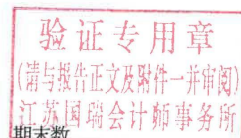 验证专用章
(请与报告正文及附件一并审阅)
江苏国瑞会计师事务所
期末数